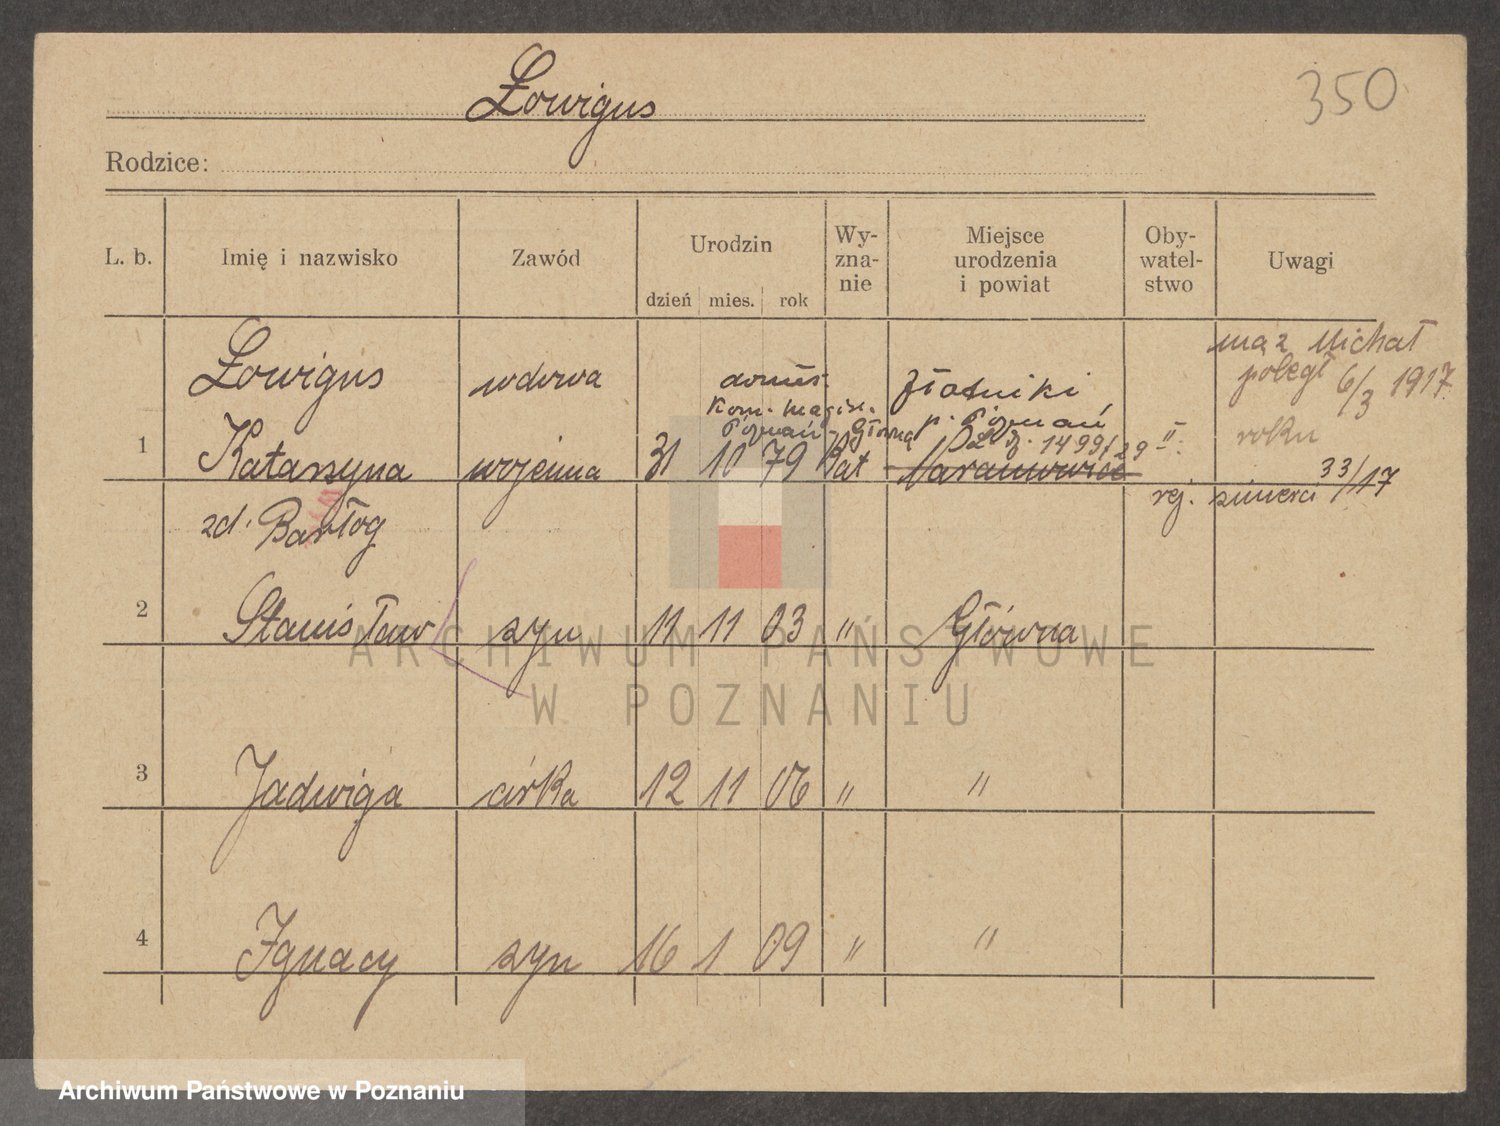 Łowigus
350
Rodzice:
L. b. Imię i nazwisko Zawód Urodzin dzień mies. rok Wy-zna-nie Miejsce urodzenia i powiat Oby-watel-stwo Uwagi
Łowigus wdowa
mąż Michał
poległ 6/3 1917
roku
donieś.
Kom. magistr.
Poznań - Główna
Złotniki
p. Poznań
DL Z. 1499/29 II.
1 Katarzyna wojenna 31 10 79 kat Naramowice
rej. śmierci 33/17
zd. Bartłog
2 Stanisław syn 11 11 03 " Główna
3 Jadwiga córka 12 11 06 " "
4 Ignacy syn 16 1 09 " "
ARCHIWUM PAŃSTWOWE
W POZNANIU
Archiwum Państwowe w Poznaniu